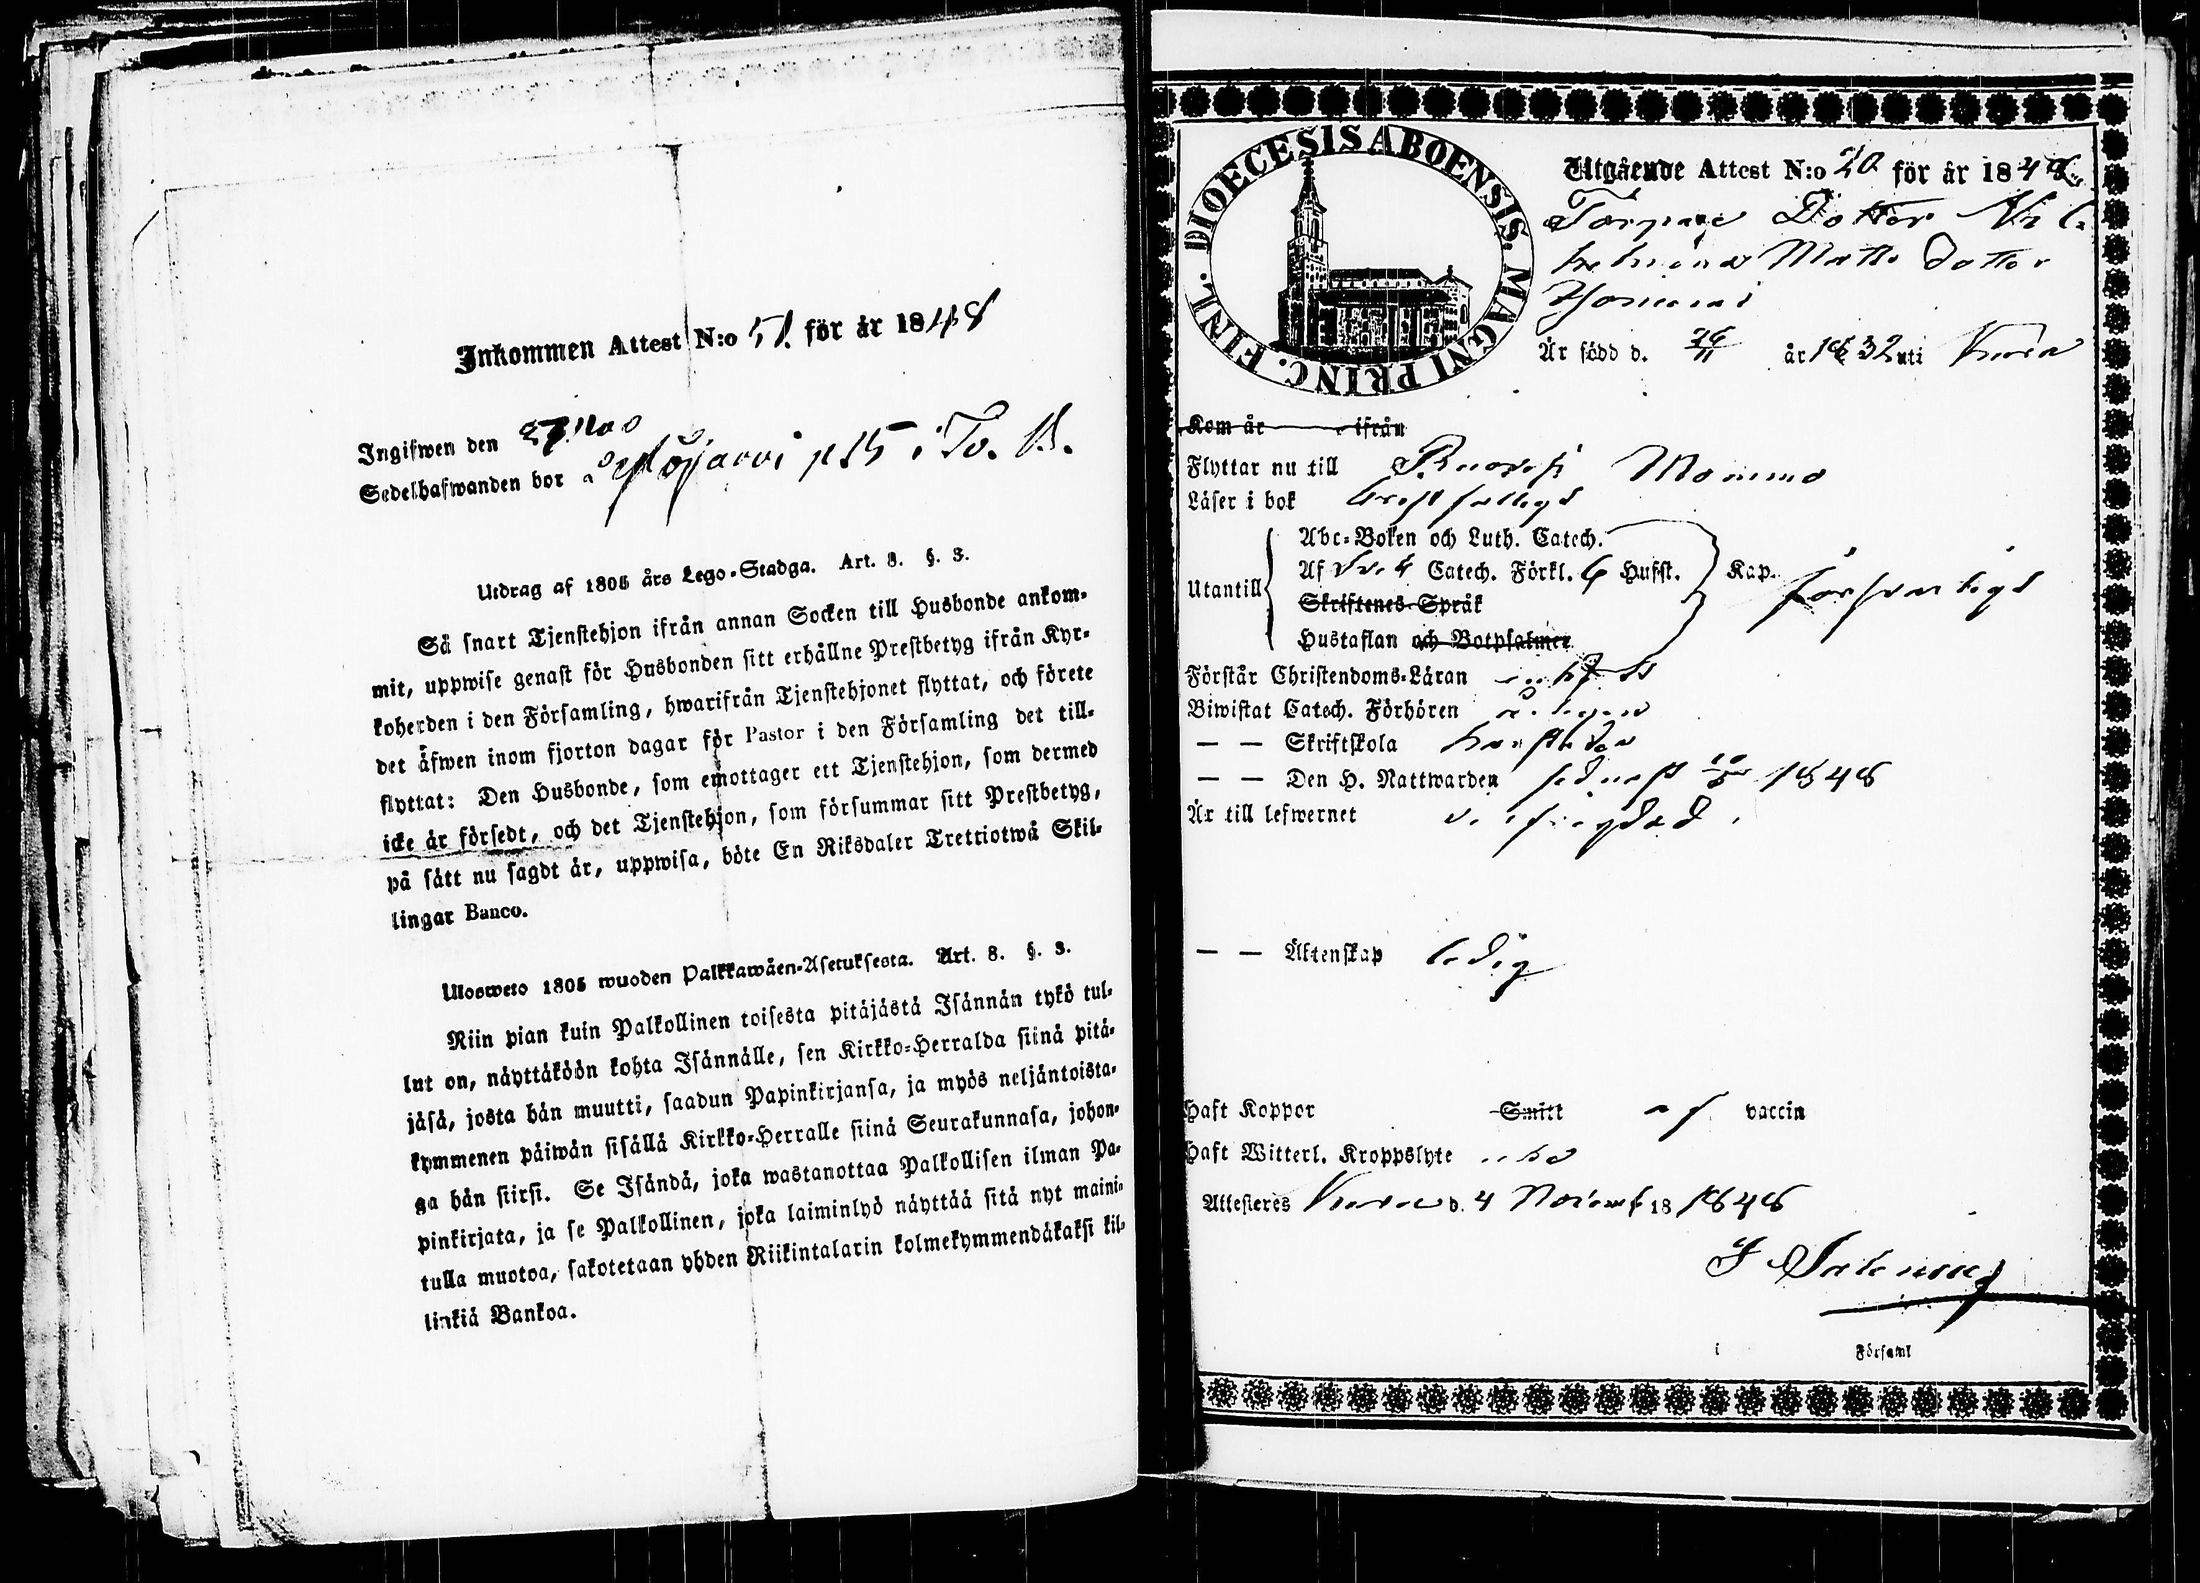 Inkommen Attest N:o 51. för år 1848
Ingifwen den 27 Nov
Sedelhafwanden bor a Ylöjärvi p 15 i To. B.
Utdrag af 1805 års Lego-Stadga. Art. 8. §. 3.
Så snart Tjenstehjon ifrån annan Socken till Husbonde ankom-
mit, uppwise genast för Husbonden sitt erhållne Prestbetyg ifrån Kyr-
koherden i den Församling, hwarifrån Tjenstehjonet flyttat, och förete
det äfwen inom fjorton dagar för Pastor i den Församling det till-
flyttat: Den Husbonde, som emottager ett Tjenstehjon, som dermed
icke är försedt, och det Tjenstehjon, som försummar sitt Prestbetyg,
på sätt nu sagdt är, uppwisa, böte En Riksdaler Trettiotwå Skil-
lingar Banco.
Ulosweto 1805 wuoden Palkkawäen-Asetuksesta. Art. 8. §. 3.
Niin pian kuin Palkollinen toisesta pitäjästä Isännän tykö tul-
lut on, näyttäköön kohta Isännälle, sen Kirkko-Herralda siinä pitä-
jäsä, josta hän muutti, saadun Papinkirjansa, ja myös neljäntoista-
kymmenen päiwän sisällä Kirkko-Herralle siinä Seurakunnasa, johon-
ga hän siirsi. Se Isändä, joka wastanottaa Palkollisen ilman Pa-
pinkirjata, ja se Palkollinen, joka laiminlyö näyttää sitä nyt maini-
tulla muotoa, sakotetaan yhden Riikintalarin kolmekymmendäkaksi kil-
linkiä Bankoa.
DIOECESIS ABOENSIS. MAGNI PRINC. FINL.
Utgående Attest N:o 20 för år 1848
Torpare Dotter Wil
helmina Matts dotter
Är född d. 26/11 år 1832 uti
Kom år ifrån
Flyttar nu till Ruovesi Mommo
Läser i bok
Utantill
Abc-Boken och Luth. Catech.
Af Sv. 4 Catech. Förkl. 6 Hufst. Kap. försvarligt
Skriftenes Språk
Hustaflan och Botpsalmer
Förstår Christendoms-Läran
Biwistat Catech. Förhören
— — Skriftskola
— — Den H. Nattwarden sednast 1848
Är till lefwernet
— — Äktenskap ledig
Haft Koppor Smitt af vaccin
Haft Witterl. Kroppslyte icke
Attesteres d. 4 Novemb 18 1848
i Församl